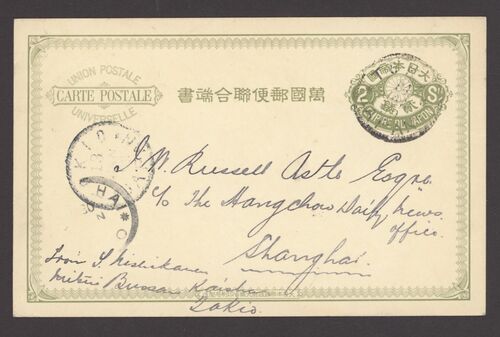 UNION POSTALE
CARTE POSTALE
UNIVERSELLE
書端合聯便郵國萬
大日本帝國
2 S
EMPIRE DU JAPON
TOKIO
J. W. Russell Astle Esqre
c/o The Hangchow Daily News
office.
Shanghai.
From S.
Mitsui Bussan Kaisha
Tokio.